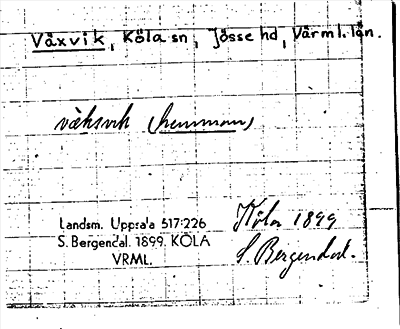 Växvik, Köla sn, Jösse hd, Värml. län.
väksvik (hemman)
Landsm. Uppsala 517:226
S. Bergendal. 1899. KÖLA
VRML.
Köla 1899
S. Bergendal.